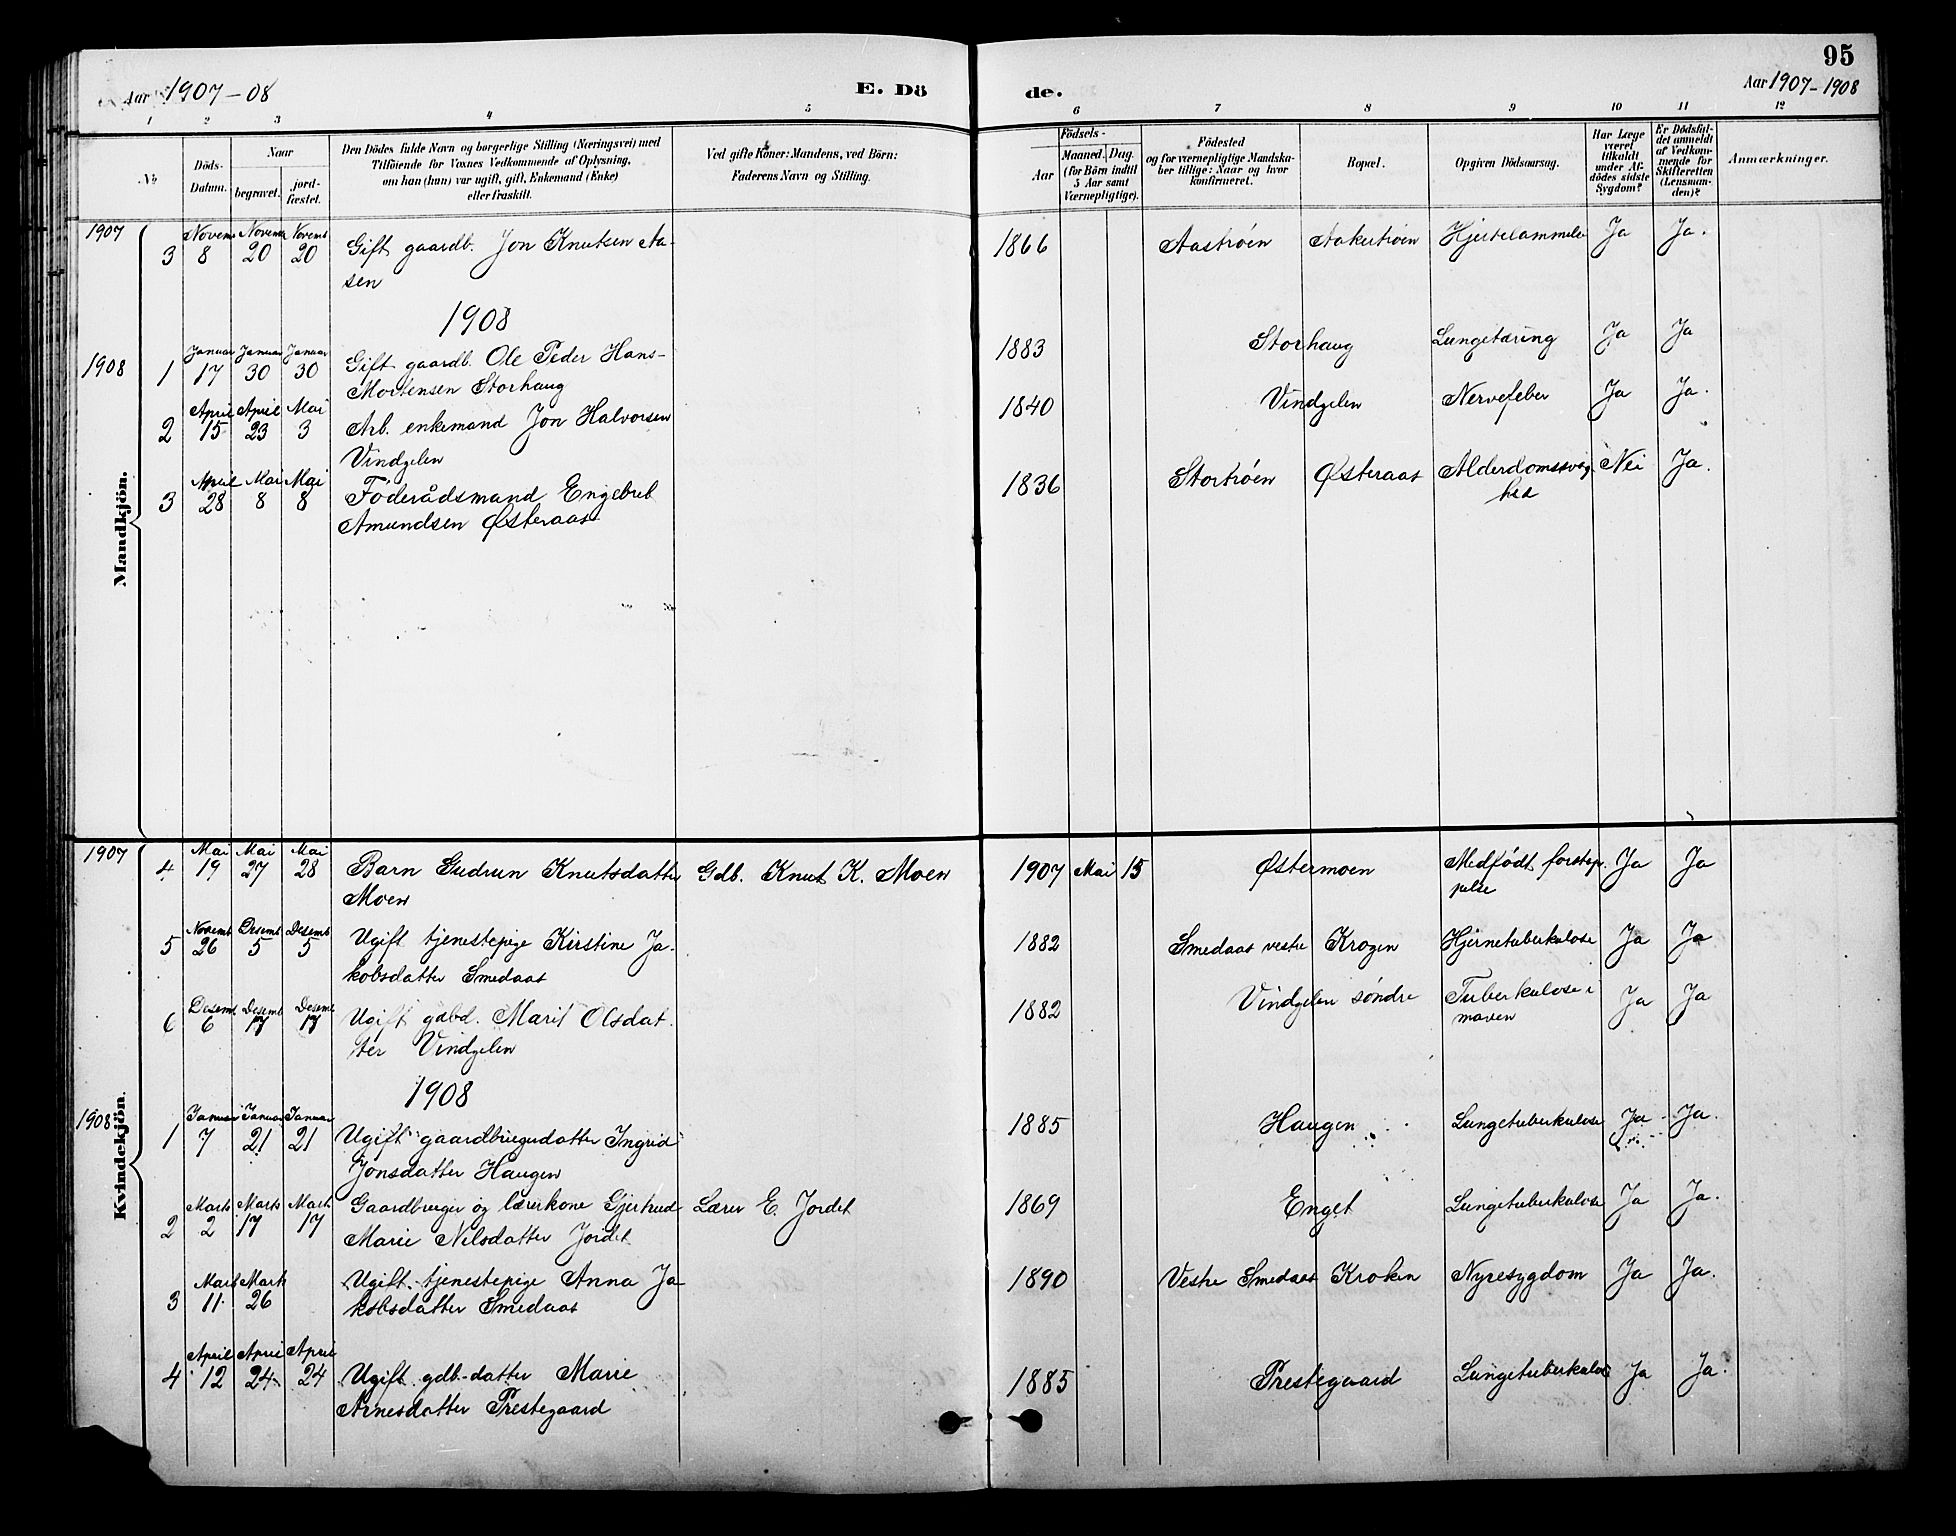 95
Aar 1907-08
E. Dö
de.
Aar 1907-1908
1 2 3 4 5 6 7 8 9 10 11 12
No
Döds-Datum.
Naar
begravet.
jord-fæstet.
Den Dödes fulde Navn og borgerlige Stilling (Næringsvei) med
Tilföiende for Voxnes Vedkommende af Oplysning,
om han (hun) var ugift, gift, Enkemand (Enke)
eller fraskilt.
Ved gifte Koner: Mandens, ved Börn:
Faderens Navn og Stilling.
Födsels-
Aar
Maaned. Dag.
(for Börn indtil
5 Aar samt
Værnepligtige).
Födested
og for værnepligtige Mandska-
ber tillige: Naar og hvor
konfirmeret.
Bopæl.
Opgiven Dödsaarsag.
Har Læge
været
tilkaldt
under Af-
dödes sidste
Sygdom?
Er Dödsfal-
det anmeldt
af Vedkom-
mende for
Skifteretten
(Lensman-
den)?
Anmærkninger.
Mandkjön.
1907
3 Novemb 8 Novemb 20 Novemb 20 Gift gaardb. Jon Knutsen Aa- 1866 Aastrøen Aakertrøen Hjertelammelse Ja Ja.
sen
1908
1908 1 Januar 17 Januar 30 Januar 30 Gift gaardb. Ole Peder Hans- 1883 Storhaug Lungetæring Ja Ja
Mortensen Storhaug
2 April 15 April 23 Mai 3 Arb. enkemand Jon Halvorsen 1840 Vindgelen Nervefeber Ja Ja.
Vindgelen
3 April 28 Mai 8 Mai 8 Føderådsmand Engebret 1836 Stortrøen Østeraas Alderdomssvag- Nei Ja.
Amundsen Østeraas hed
Kvindekjön.
1907
4 Mai 19 Mai 27 Mai 28 Barn Gudrun Knutsdatter Gdb. Knut K. Moen 1907 Mai 15 Østermoen Medfødt forstop- Ja Ja
Moen pelse
5 Novemb 26 Desemb 5 Desemb 5 Ugift tjenestepige Kirstine Ja- 1882 Smedaas vestre Krogen Hjernetuberkulose Ja Ja
kobsdatter Smedaas
6 Desemb 6 Desemb 17 Desemb 17 Ugift gdbd. Marit Olsdat- 1882 Vindgelen søndre Tuberkulose i Ja Ja
ter Vindgelen maven
1908
1908 1 Januar 7 Januar 21 Januar 21 Ugift gaardbrugerdatter Ingrid 1885 Haugen Lungetuberkulose Ja Ja.
Jonsdatter Haugen
2 Marts 2 Marts 17 Marts 17 Gaardbruger og lærerkone Gjertrud Lærer E. Jordet 1869 Enget Lungetuberkulose Ja Ja.
Marie Nilsdatter Jordet
3 Marts 11. Marts 26 Ugift tjenestepige Anna Ja 1890 Vestre Smedaas Kroken Nyresygdom Ja Ja.
kobsdatter Smedaas
4 April 12 April 24 April 24 Ugift gdb.-datter Marie 1885 Prestegaard Lungetuberkulose Ja Ja.
Arnesdatter Prestegaard